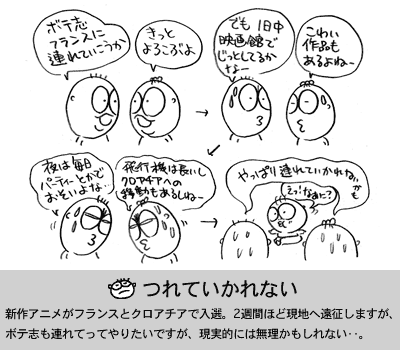 ボテ志
フランスに
連れていこうか
きっと
よろこぶよ
でも1日中
映画館で
じっとしてるか
なー
こわい
作品も
あるよねー
夜は毎日
パーティーとかで
おそいよな‥
飛行機は長いし
クロアチアへの
移動もあるしねー
やっぱり連れていかれないかも
えっ!なぁに?
つれていかれない
新作アニメがフランスとクロアチアで入選。2週間ほど現地へ遠征しますが、
ボテ志も連れてってやりたいですが、現実的には無理かもしれない‥。